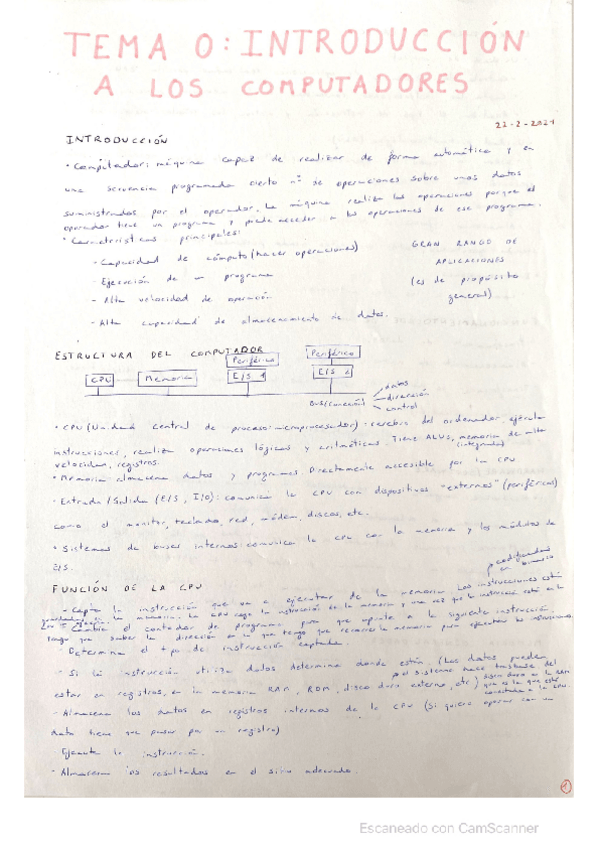 TEMA 0: INTRODUCCIÓN
A LOS COMPUTADORES
22-2-2021
INTRODUCCIÓN
· Computador: máquina capaz de realizar de forma automática y en
una secuencia programada cierto nº de operaciones sobre unos datos
suministrados por el operador. La máquina realiza las operaciones porque el
operador tiene un programa y puede acceder a las operaciones de ese programa.
· Características principales:
- Capacidad de cómputo (hacer operaciones)
- Ejecución de un programa
- Alta velocidad de operación
- Alta capacidad de almacenamiento de datos.
GRAN RANGO DE
APLICACIONES
(es de propósito
general)
ESTRUCTURA DEL COMPUTADOR
CPU
Memoria
Periférico
E/S 1
Periférico
E/S
BUS (conexión)
datos
dirección
control
· CPU (Unidad central de proceso: microprocesador): cerebro del ordenador, ejecuta
instrucciones, realiza operaciones lógicas y aritméticas. Tiene ALUs, memoria de alta
(integrada)
velocidad, registros.
· Memoria: almacena datos y programas Directamente accesible por la CPU
· Entrada/Salida (E/S, I/O): comunica la CPU con dispositivos "externos" (periféricos)
como el monitor, teclado, red, módem, discos, etc.
· Sistemas de buses internos: comunica la CPU con la memoria y los módulos de
E/S.
FUNCIÓN DE LA CPU
- Capta la instrucción que va a ejecutar de la memoria Las instrucciones están
codificadas
en binario
en la memoria. La CPU coge la instrucción de la memoria y una vez que la instrucción está en la
- Cambia el contador de programa para que apunte a la siguiente instrucción.
Tengo que saber la dirección en la que tengo que
- Determina el tipo de instrucción captada.
- Si la instrucción utiliza datos, determina donde están. (Los datos pueden
estar en registros, en la memoria RAM, ROM, disco duro externo, etc)
- Almacena los datos en registros internos de la CPU (Si quiero operar con un
dato tiene que pasar por un registro)
Ejecuta la instrucción.
- Almacena los resultados en el sitio adecuado.
1
Escaneado con CamScanner